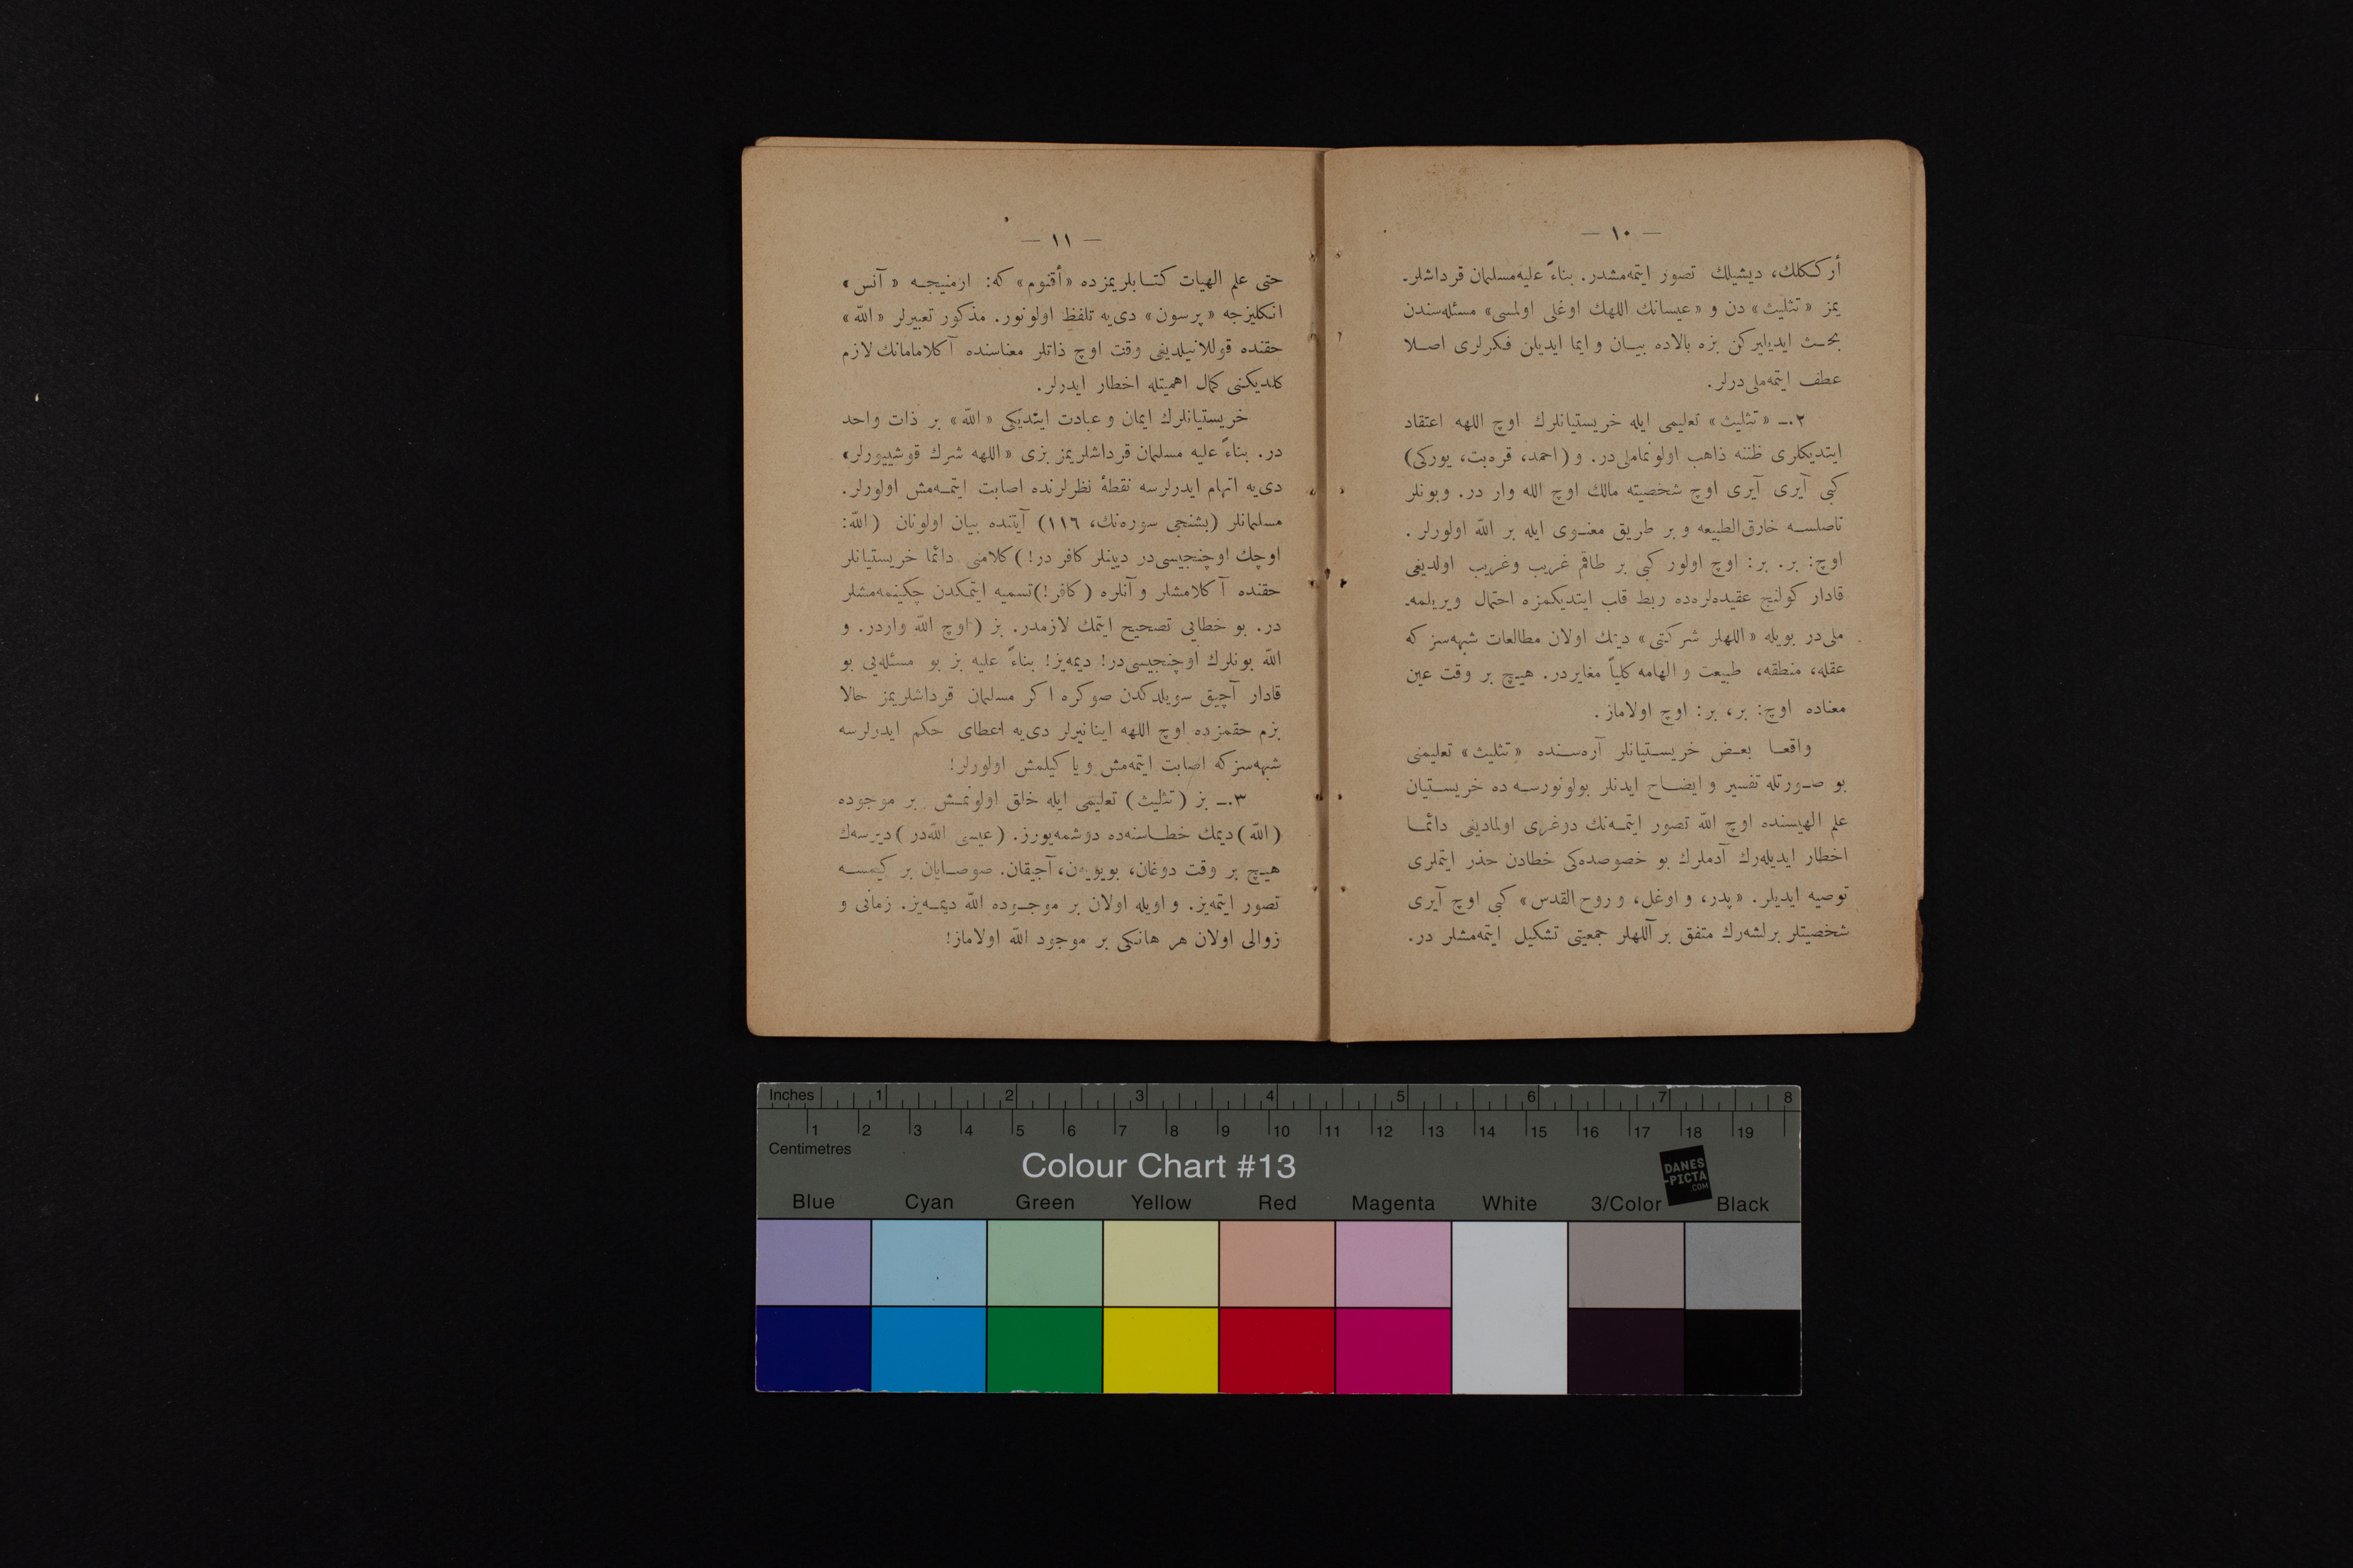 — ١٠ —
أركـكلك، ديشيلك تصور ايتمه‌مشدر. بناءً عليه مسلمان قرداشلر.
يمز «تثليث» دن و «عيسانك اللهك اوغلی اولمسی» مسئله‌سندن
بحـث ايديليركن بزه بالاده بيـان و ايما ايديلن فكرلری اصـلا
عطف ايتمه‌ملی‌درلر.
٢.ـ «تثليث» تعليمی ايله خريستيانلرك اوچ اللهه اعتقاد
ايتديكلری ظننه ذاهب اولونماملی‌در. و (احمد، قره‌بت، يورکی)
کبی آيری آيری اوچ شخصيته مالك اوچ الله وار در. وبونلر
ناصلسـه خارق‌الطبيعه و بر طريق معنـوی ايله بر الله اولورلر.
اوچ: بر. بر: اوچ اولور کبی بر طاقم غريب وغريب اولديغی
قادار كولنج عقيده‌لره‌ده ربط قلب ايتديكمزه احتمال ويريلمه‌ـ
ملی‌در بويله «اللهلر شركتی» ديمك اولان مطالعات شبهه‌سز كه
عقله، منطقه، طبيعت و الهامه كلياً مغايردر. هيـچ بر وقت عين
معناده اوچ: بر، بر: اوچ اولاماز.
واقعـا بعـض خريسـتيانلر آره‌سـنده «تثليث» تعليمنی
بو صـورتله تفسير و ايضـاح ايدنلر بولونورسـه ده خريسـتيان
علم الهيسنده اوچ الله تصور ايتمـه‌نك دوغری اولمادينی دائمـا
اخطار ايديله‌رك آدملرك بو خصوصده‌کی خطادن حذر ايتملری
توصيه ايديلر. «پدر، و اوغل، و روح القدس» کبی اوچ آيری
شخصيتلر برلشه‌رك متفق بر آللهلر جمعيتی تشكيل ايتمه‌مشلر در.
— ١١ —
حتی علم الهيات كتـابلريمزده «أقنوم» كه: ارمنيجـه «آنس»
انكليزجه «پرسون» دی‌يه تلفظ اولونور. مذكور تعبيرلر «الله»
حقنده قوللانيلديغی وقت اوچ ذاتلر معناسنده آكلامامانك لازم
كلديكنی كمال اهميتله اخطار ايدرلر.
خريستيانلرك ايمان و عبادت ايتديكی «الله» بر ذات واحد
در. بناءً عليه مسلمان قرداشلريمز بزی «اللهه شرك قوشييورلر»
دی‌يه اتهام ايدرلرسه نقطهٔ نظرلرنده اصابت ايتمـه‌مش اولورلر.
مسلمانلر (بشنجی سوره‌نك، ١١٦) آيتنده بيان اولونان (الله:
اوچك اوچنجيسی‌در ديينلر كافر در!) كلامنی دائما خريستيانلر
حقنده آكلامشلر و آنلره (كافر!) تسميه ايتمكدن چكينمه‌مشلر
در. بو خطايی تصحيح ايتمك لازمدر. بز (اوچ الله واردر. و
الله بونلرك اوچنجيسی‌در! ديمه‌يز! بناءً عليه بز بو مسئله‌يی بو
قادار آچيق سويلدكدن صوكره اكر مسلمان قرداشلريمز حالا
بزم حقمزده اوچ اللهه اينانيرلر دی‌يه اعطای حكم ايدرلرسه
شبهه‌سز كه اصابت ايتمه‌مش و يا كيلمش اولورلر!
٣.ـ بز (تثليث) تعليمی ايله خلق اولونمـش بر موجوده
(الله) ديمك خطـاسنه‌ده دوشمه‌يورز. (عيسی الله‌در) ديرسه‌ك
هيـچ بر وقت دوغان، بويوين، آجيقان. صوصـايان بر كيمسـه
تصور ايتمه‌يز. و اويله اولان بر موجـوده الله ديمـه‌يز. زمانی و
زوالی اولان هر هانـکی بر موجود الله اولاماز!
Inches 1 2 3 4 5 6 7 8
1 2 3 4 5 6 7 8 9 10 11 12 13 14 15 16 17 18 19
Centimetres
Colour Chart #13
DANES
-PICTA
.COM
Blue Cyan Green Yellow Red Magenta White 3/Color Black